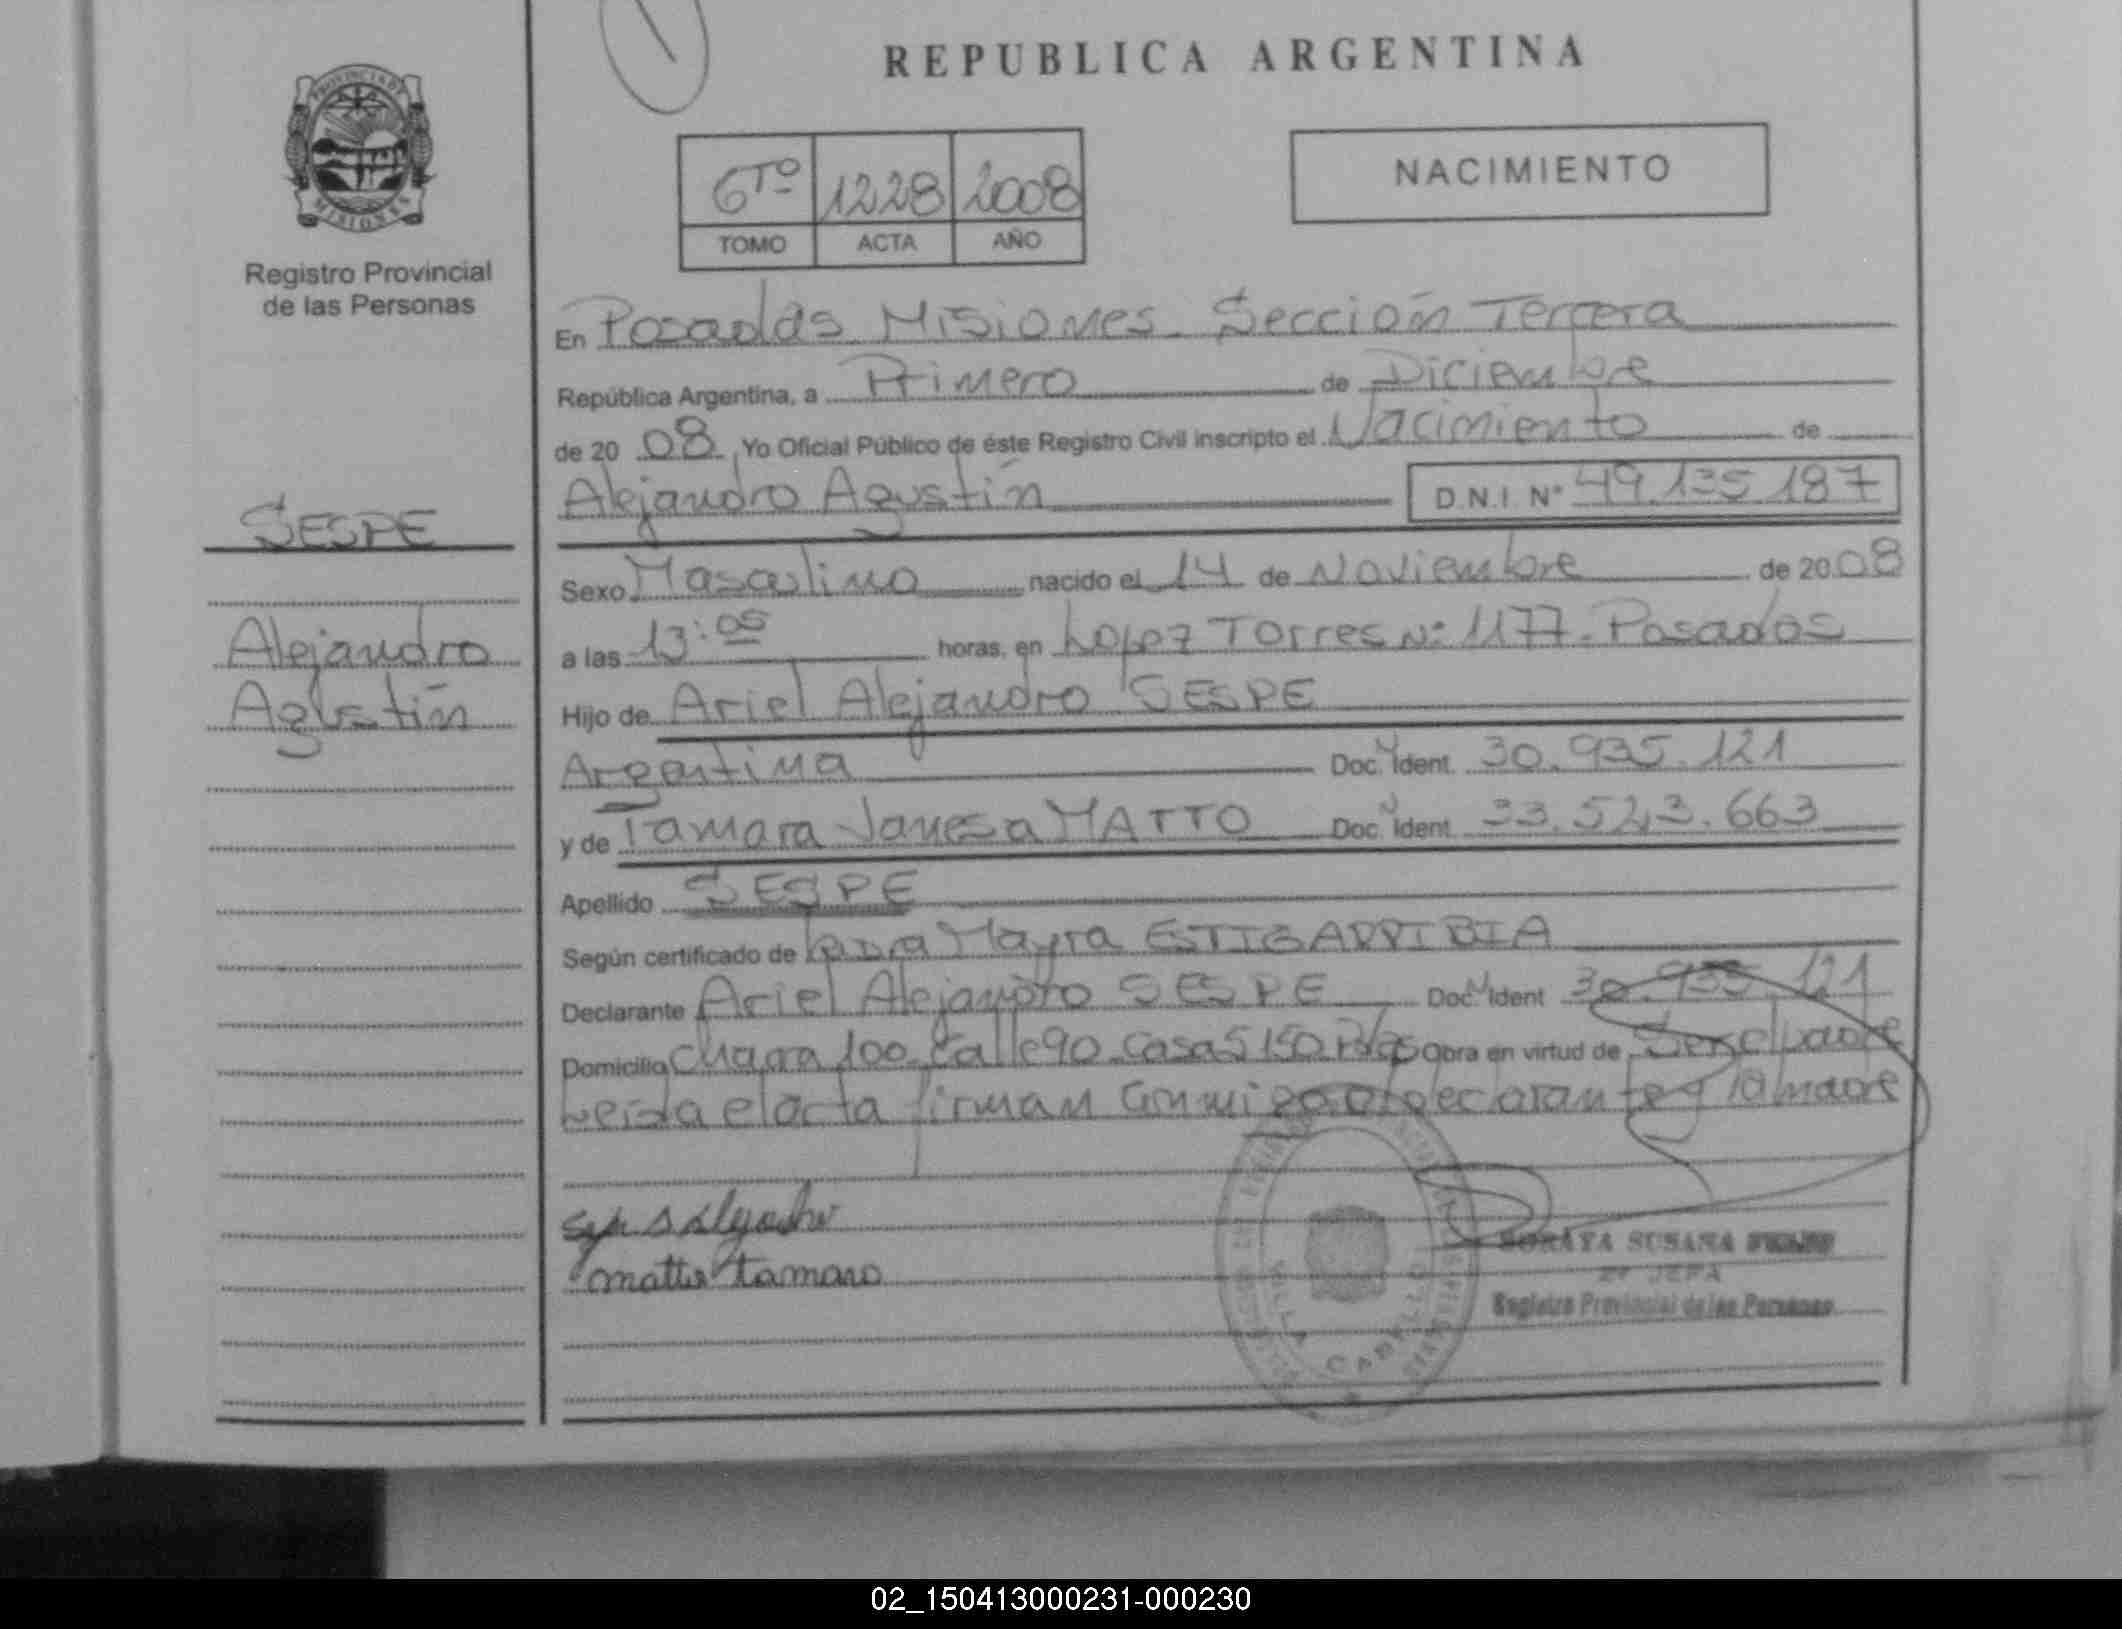 REPUBLICA ARGENTINA
PROVINCIA DE
MISIONES
Registro Provincial
de las Personas
6TO 1228 2008
TOMO ACTA AÑO
NACIMIENTO
SESPE
Alejandro
Agustín
En Posadas Misiones. Sección Tercera
República Argentina, a Primero de Diciembre
de 20 08 Yo Oficial Público de éste Registro Civil inscripto el Nacimiento de
Alejandro Agustín D.N.I. Nº 49.135.187
Sexo Masculino nacido el 14 de Noviembre de 2008
a las 13:05 horas, en Lopez Torres Nº 1177. Posadas
Hijo de Ariel Alejandro SESPE
Argentina Doc. Ident. 30.935.121
y de Tamara Vanesa MATTO Doc. Ident. 33.523.663
Apellido SESPE
Según certificado de Mayra ESTIGARRIBIA
Declarante Ariel Alejandro SESPE Doc. Ident 30.935.121
Domicilio Chacra 100. Calle 90. Casa 5150 Obra en virtud de Ser el padre
leida el acta firman conmigo el declarante y la madre
matto tamara
SORAYA SUSANA
2º JEFA
Registro Provincial de las Personas
VILLA CABELLO
02_150413000231-000230